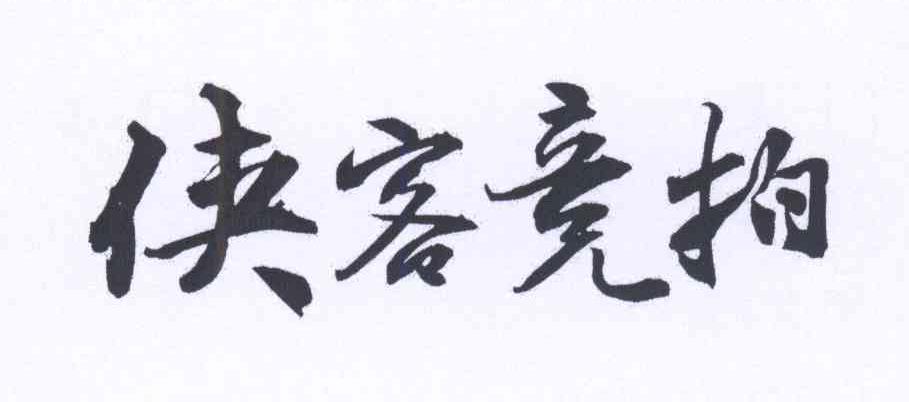 侠客竞拍